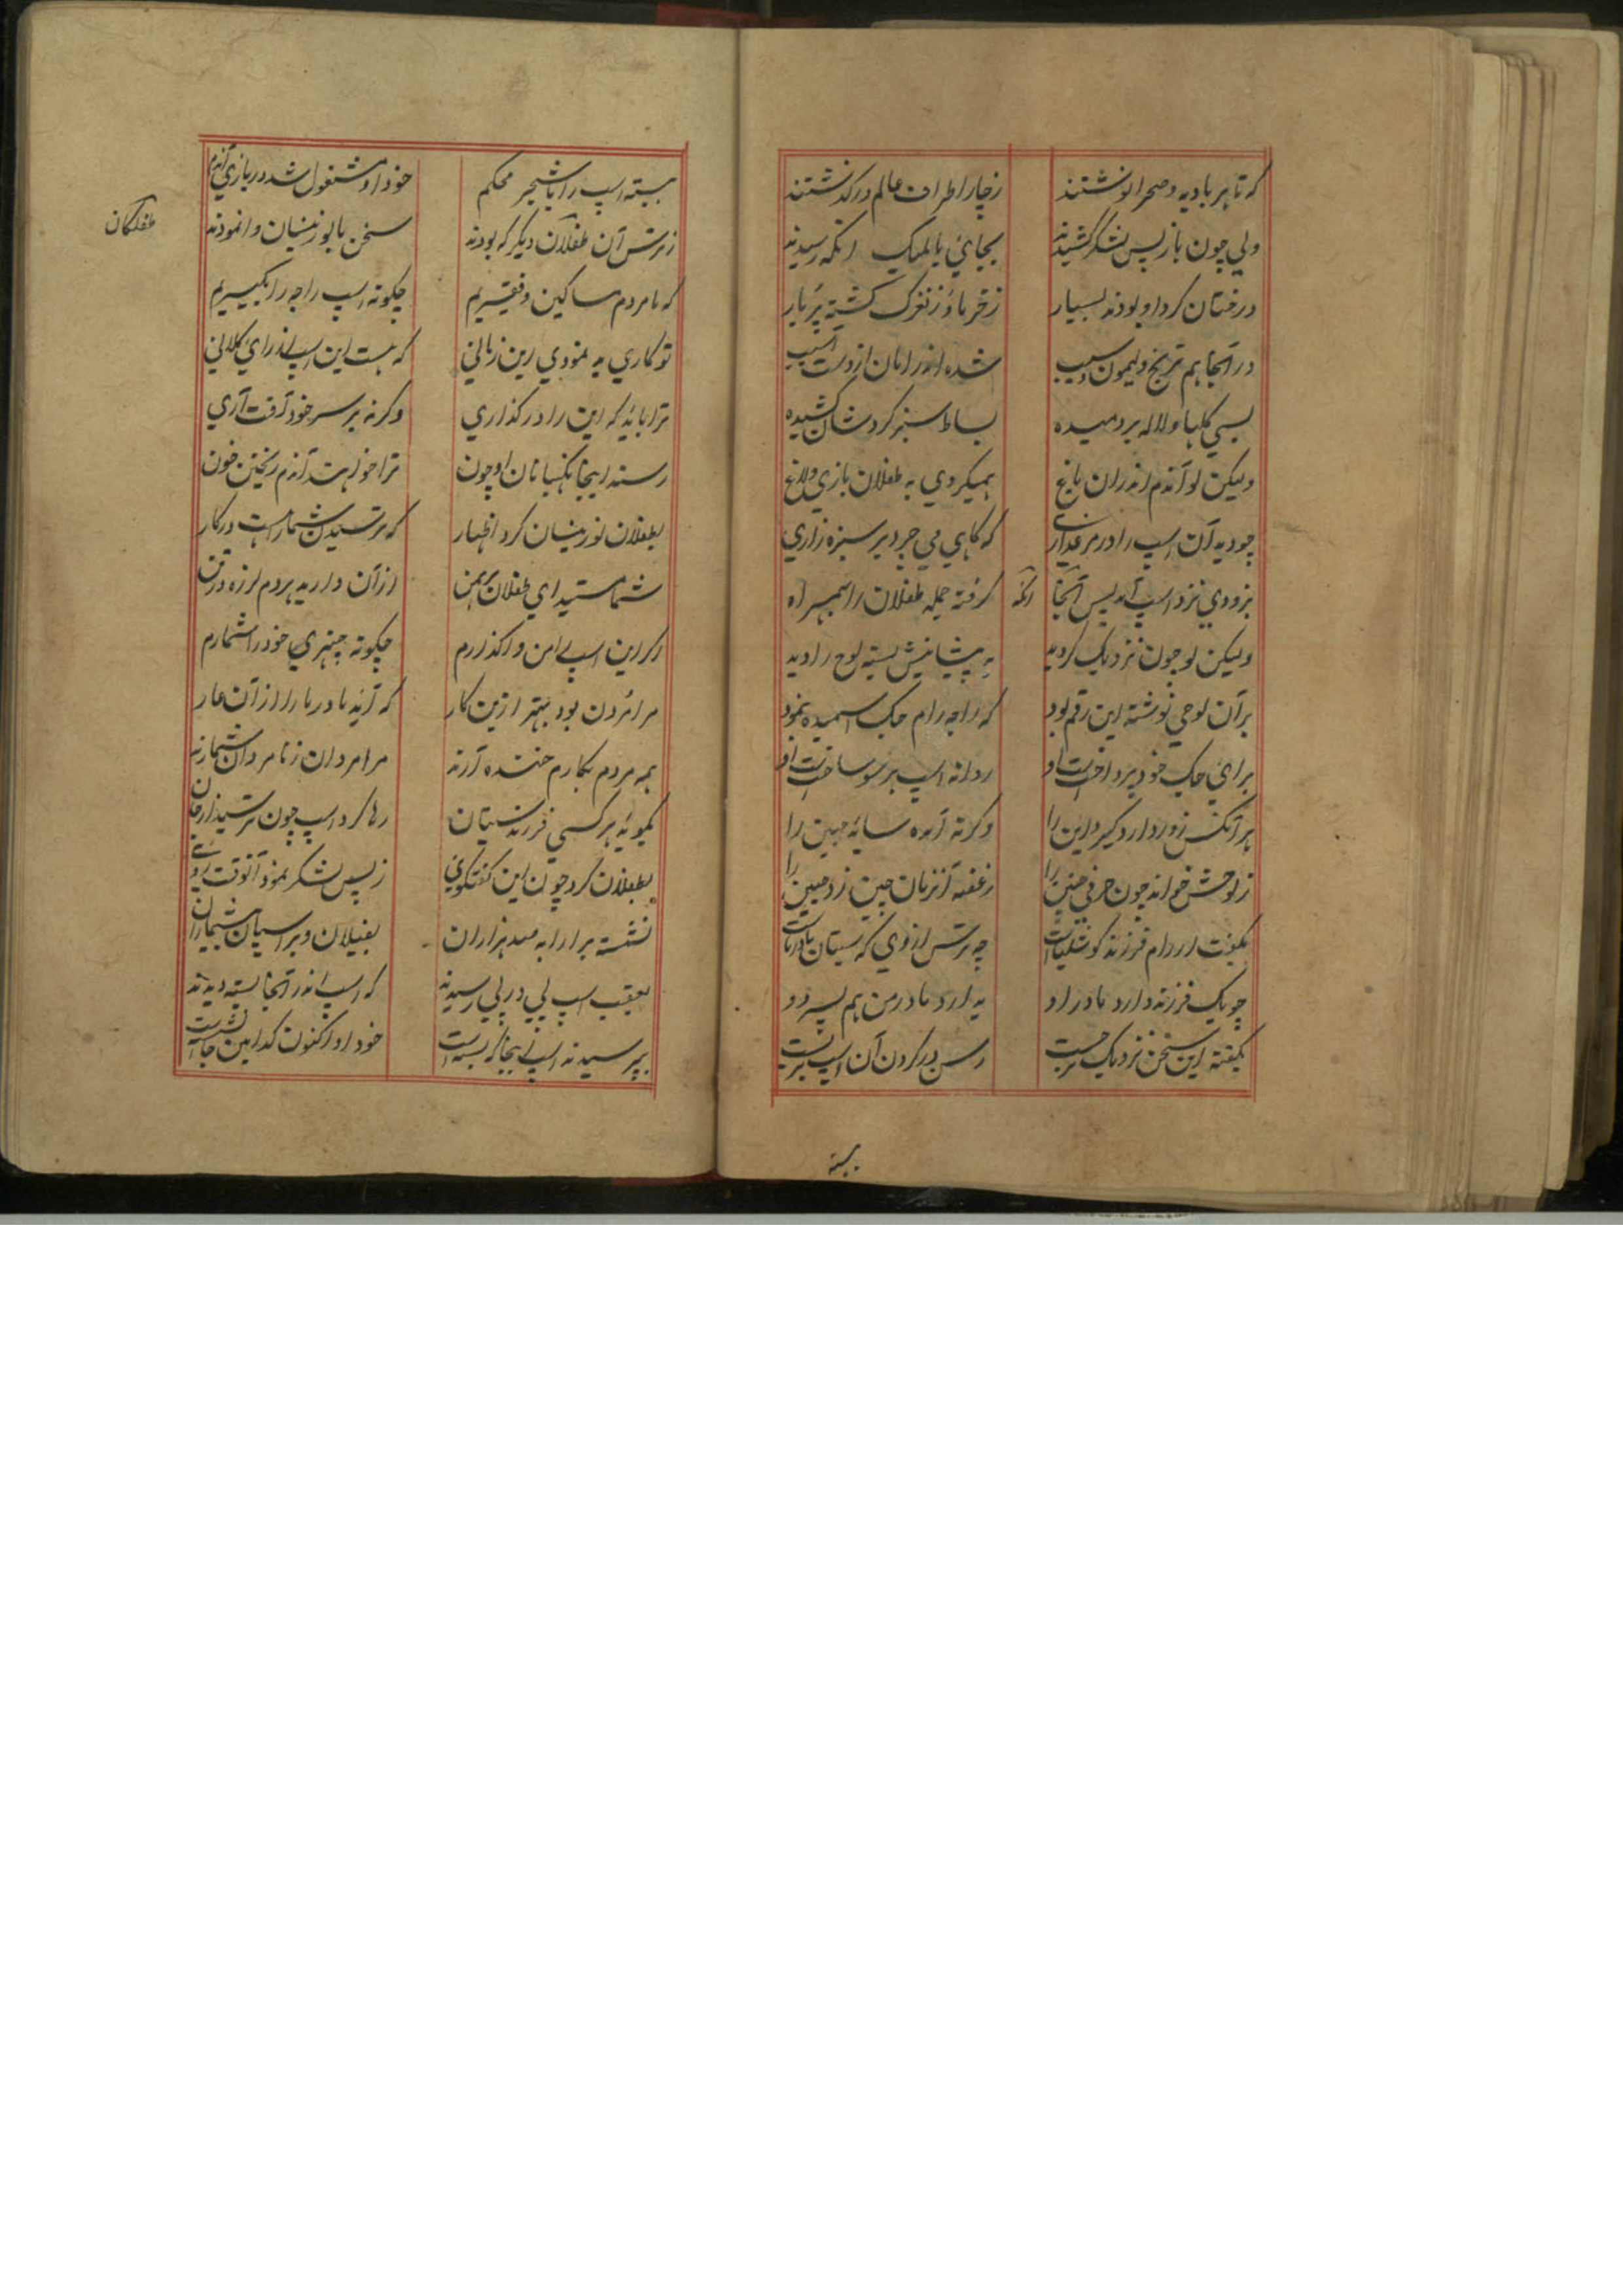 که تا هر بادیه و صحرا نوشتند زچار اطراف عالم در گذشتند
ولی چون باز پس لشکر کشیدند بجایی بالمیک آنکه رسیدند
درختان گرد او بودند بسیار ز خرما و ز نغزک گشته پربار
در آنجا هم ترنج و لیمون و سیب شده اندر امان از دست آسیب
بسی گلها و لاله بردمیده بساط سبز گردشان کشیده
ولیکن لو آندم اندران باغ همیکردی به طفلان بازی و لاغ
چو دید آن اسپ را در مرغذاری که گاهی می چرد بر سبزه زاری
بزودی نزد اسپ آمد پس آنجا گرفته جمله طفلان را بهمراه
آنگه
ولیکن لو چون نزدیک گردید به پیشانیش بسته لوح را دید
بر آن لوحی نوشته این رقم بود که راجه رام جگ اسمیده بنمود
برای جگ خود پرداخت است او روانه اسپ هر سو ساخت است او
هر آنکس زور دارد گیرد این را وگرنه آمده ساید جبین را
ز لوحش خواند چون حرفی چنین را ز غصه آنزمان چین زد جبین را
بگفت ار رام فرزند کوشلیاست چه ترس از وی که سیتان مادر ماست
چو یک فرزند دارد مادر او بدارد مادر من هم پسر دو
بگفته این سخن نزدیک تر جست رسن در گردن آن اسپ بربست
ببسته
ببسته اسپ را با شجر محکم خود او مشغول شد در بازی آندم
ز ترس آن طفلکان دیگر که بودند سخن با لو زینسان وانمودند
طفلکان
که ما مردم مساکین و فقیریم چگونه اسپ راجه را بگیریم
تو کاری بد نمودی این زمانی که هست این اسپ از رای کلانی
ترا باید که این را در گذاری وگرنه بر سر خود آفت آری
رسند اینجا نگهبانان او چون ترا خواهند آندم ریختن خون
بطفلان لو زینسان کرد اظهار که ترسیدن شما را هست در کار
شما هستید ای طفلان برهمن از آن دارید هر دم لرزه در تن
اگر این اسپ من واگذارم چگونه چهتری خود را شمارم
مرا مردن بود بهتر ازین کار که آید مادر ما را از آن عار
همه مردم بکارم خنده آرند مرا مردان ز نامردان شمارند
بگوید هر کسی فرزند سیتان رها کرد اسپ چون ترسید از جان
بطفلان کرد چون این گفتگوی ز پس لشکر نمود آنوقت روی
نشسته بر ارابه صد هزاران بفیلان و بر اسپان بیشماران
بعقب اسپ پی در پی رسیدند که اسپ اندر آنجا بسته دیدند
بپرسیدند اسپ اینجا که بسته است خود او اکنون کدامین جا نشسته است